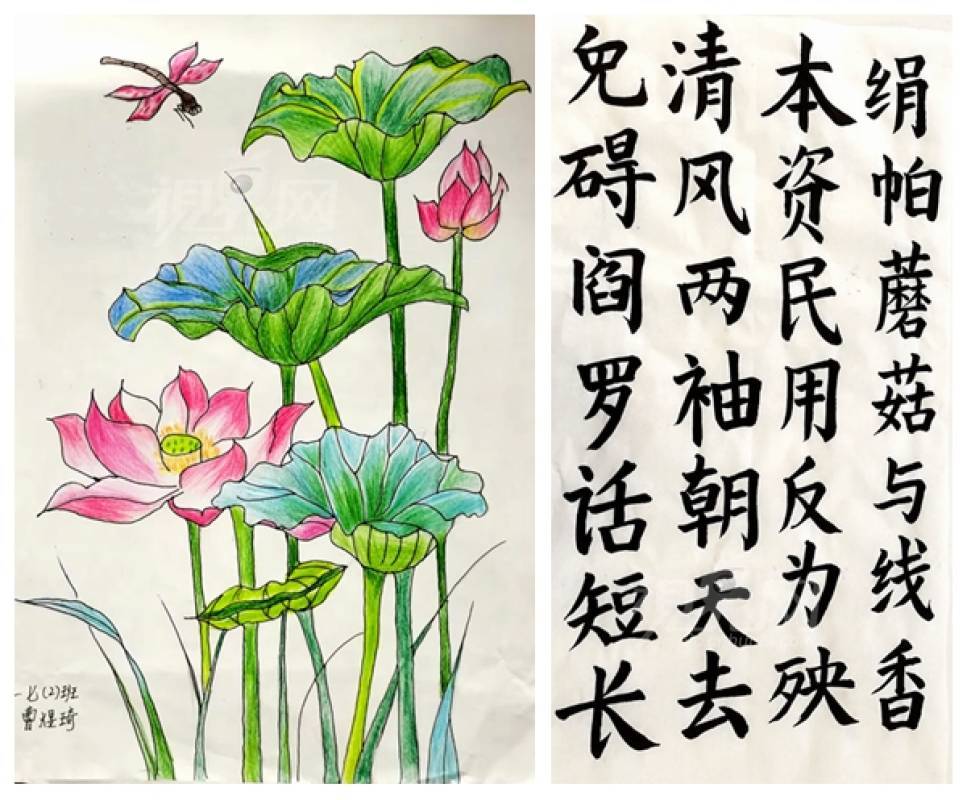 一七(2)班
曹煜琦
绢帕蘑菇与线香
本资民用反为殃
清风两袖朝天去
免碍阎罗话短长